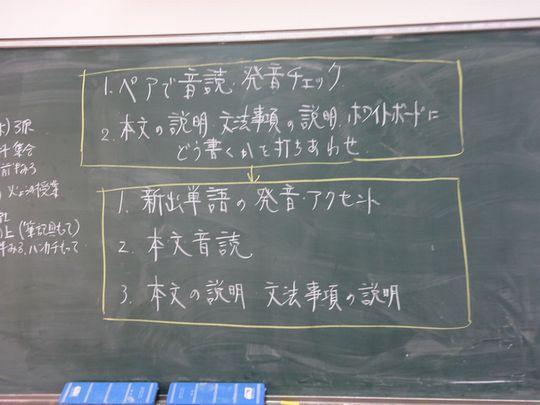 1. ペアで音読、発音チェック
2. 本文の説明、文法事項の説明、ホワイトボードに
どう書くかを打ちあわせ
1. 新出単語の発音・アクセント
2. 本文音読
3. 本文の説明 文法事項の説明
3限
集合
授業
上(筆記具もって)
ハンカチもって